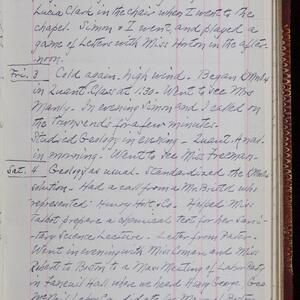 Lucia Clark in the chair when I went to the
chapel. Simon & I went and played a
game of Letters with Miss Horton in the after-
noon.
Fri. 3 Cold again. high wind. Began
in Quant. Class at 1:30. Went to see Mrs
Manly. In evening Simon and I called on
the Townsends for a few minutes.
Studied Geology in evening. Quant. Anal.
in morning. Went to see Miss Freeman.
Sat. 4 Geology as usual. Standardized the
solution. Had a call from a Mr. who
represented Henry Holt & Co. Helped Miss
Talbot prepare a chemical test for her Sani-
tary Science Lecture. Letter from
Went in evening with Miss Coman and Miss
to Boston to a Mass Meeting of Labor Party
in Faneuil Hall where we heard Henry George, Geo.